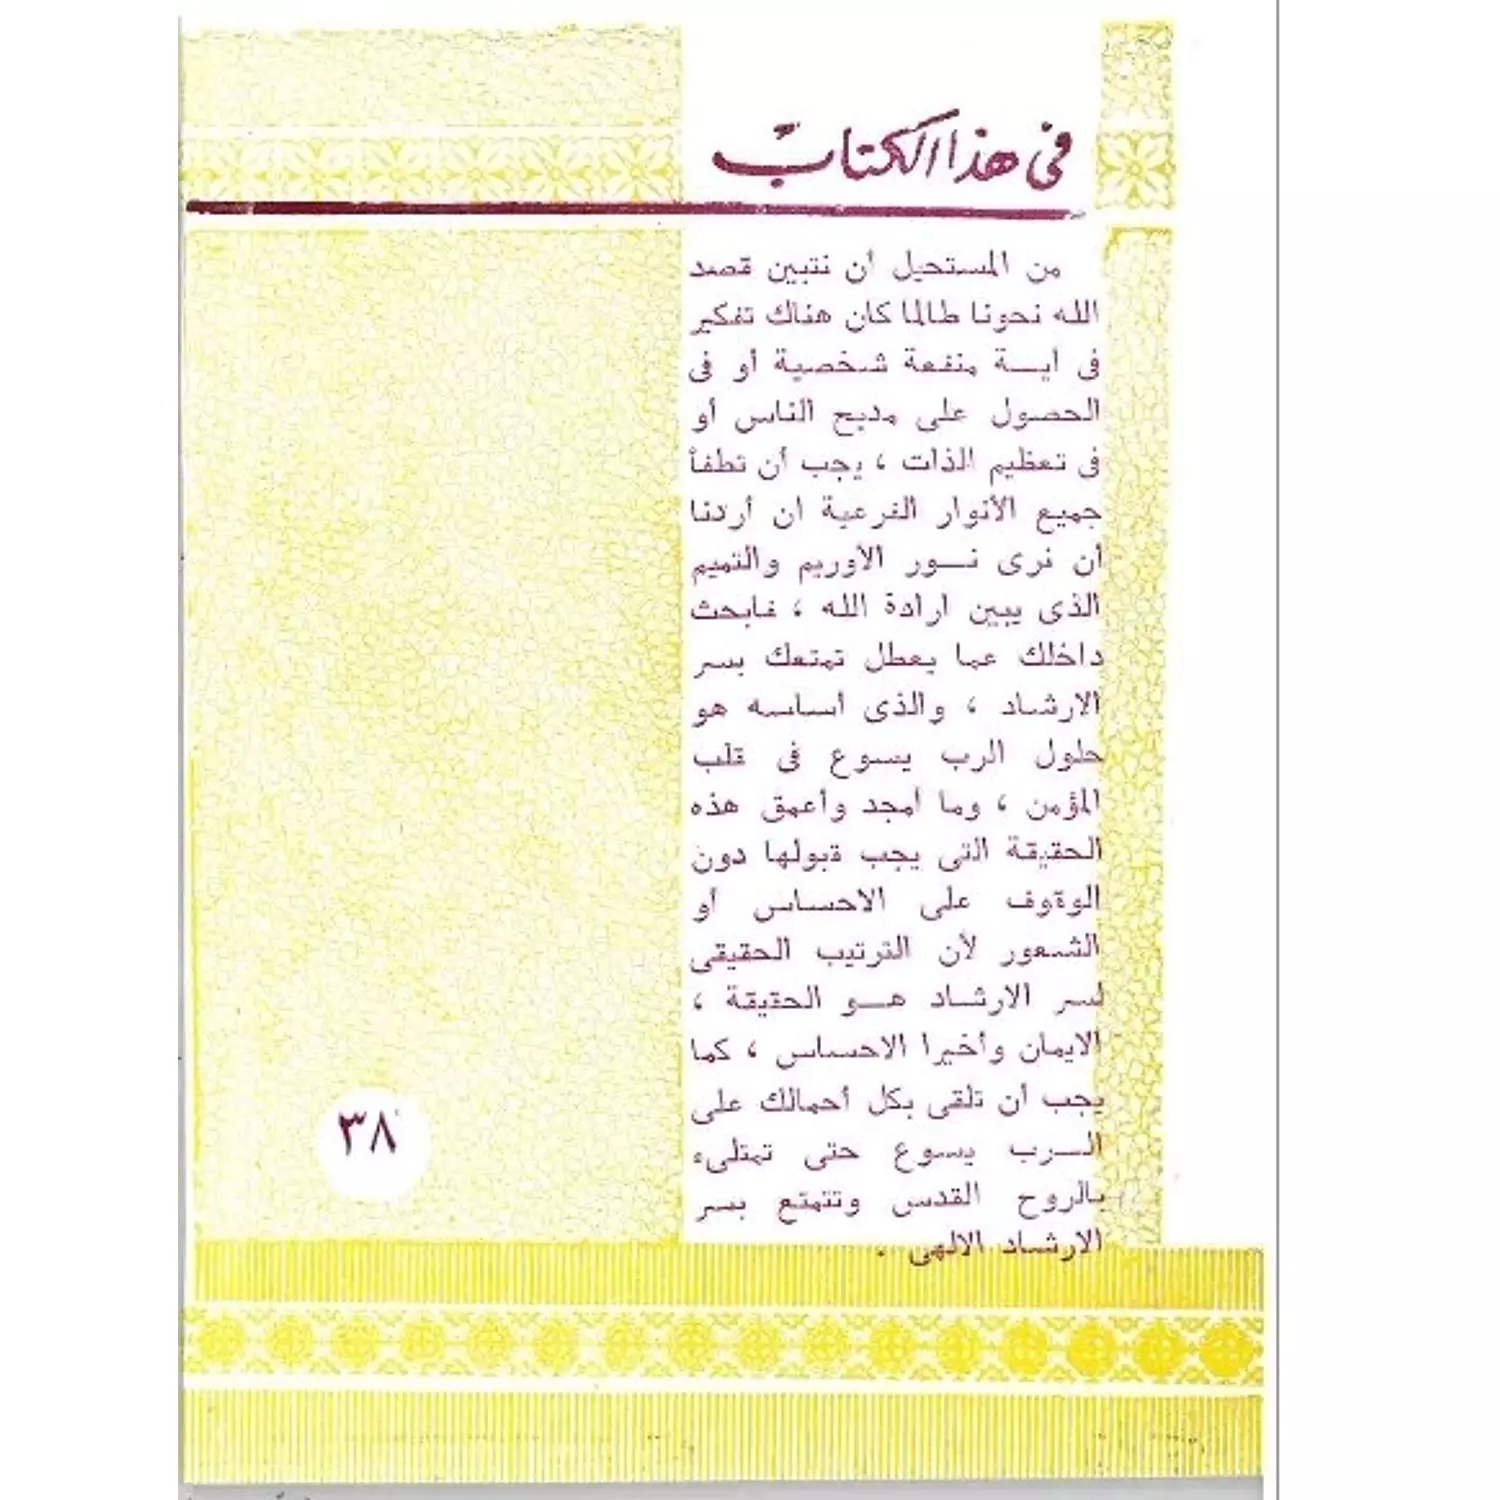 في هذا الكتاب
من المستحيل أن نتبين قصد
الله نحونا طالما كان هناك تفكير
فى أيـــة منفعة شخصية أو فى
الحصول على مديح الناس أو
فى تعظيم الذات ، يجب أن تطفأ
جميع الأنوار الفرعية ان أردنا
أن نرى نـــور الأوريم والتميم
الذى يبين ارادة الله ، فابحث
داخلك عما يعطل تمتعك بسر
الارشاد ، والذى أساسه هو
حلول الرب يسوع فى قلب
المؤمن ، وما أمجد وأعمق هذه
الحقيقة التى يجب قبولها دون
الوقوف على الاحساس أو
الشعور لأن الترتيب الحقيقى
لسر الارشاد هـــو الحقيقة ،
الايمان وأخيرا الاحساس ، كما
يجب أن تلقى بكل أحمالك على
الـــرب يسوع حتى تمتلىء
بالروح القدس وتتمتع بسر
الارشاد الالهى .
٣٨